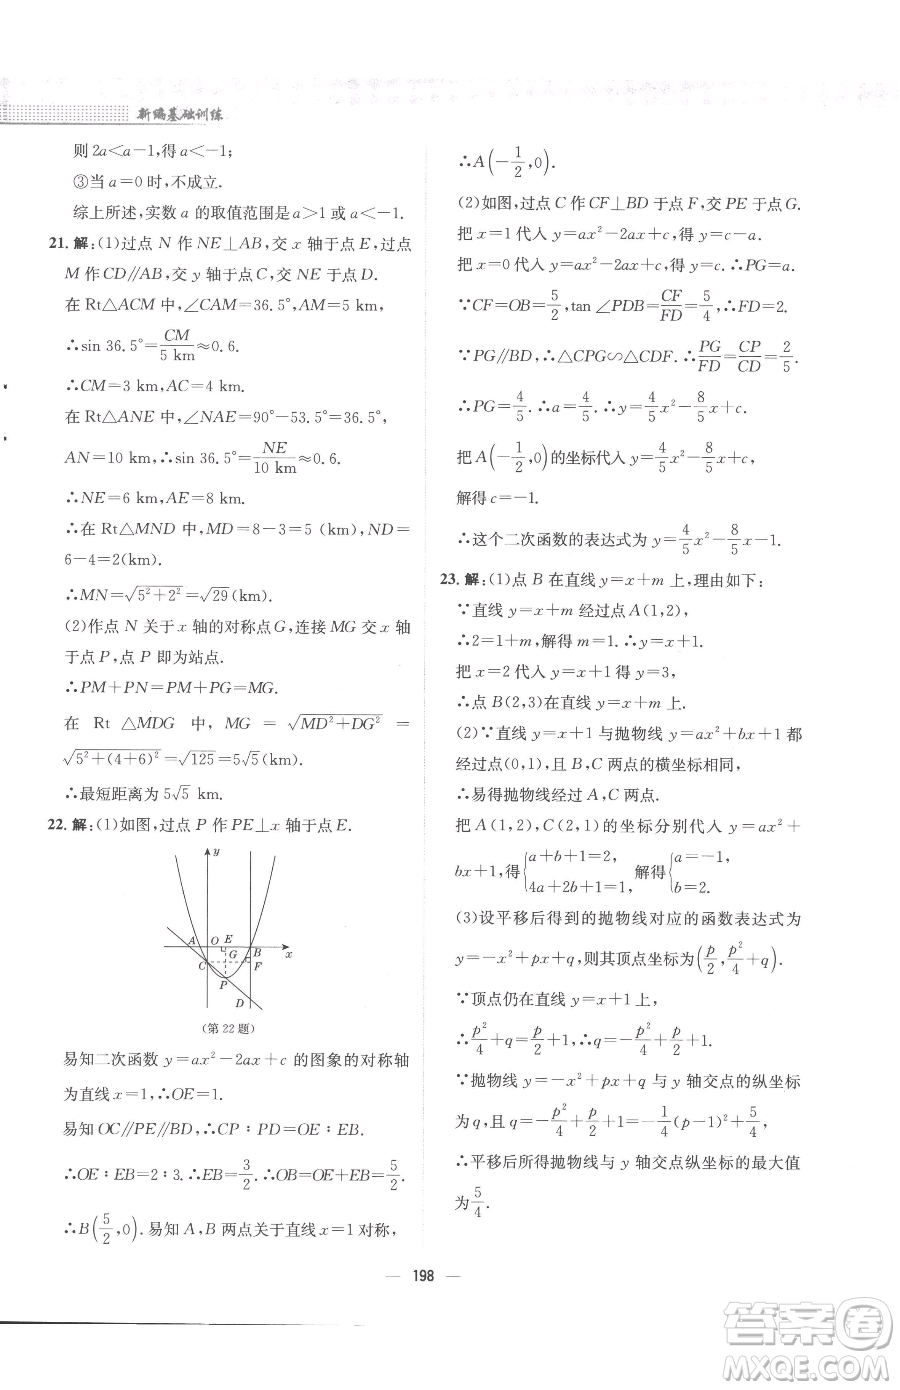 新编基础训练
则 2a<a-1,得 a<-1;
③当 a=0 时,不成立.
综上所述,实数 a 的取值范围是 a>1 或 a<-1.
21. 解:(1)过点 N 作 NE⊥AB,交 x 轴于点 E,过点
M 作 CD∥AB,交 y 轴于点 C,交 NE 于点 D.
在 Rt△ACM 中,∠CAM=36.5°,AM=5 km,
∴sin 36.5°=CM/5 km≈0.6.
∴CM=3 km,AC=4 km.
在 Rt△ANE 中,∠NAE=90°-53.5°=36.5°,
AN=10 km,∴sin 36.5°=NE/10 km≈0.6.
∴NE=6 km,AE=8 km.
∴在 Rt△MND 中,MD=8-3=5 (km),ND=
6-4=2(km).
∴MN=√(5²+2²)=√29(km).
(2)作点 N 关于 x 轴的对称点 G,连接 MG 交 x 轴
于点 P,点 P 即为站点.
∴PM+PN=PM+PG=MG.
在 Rt △MDG 中, MG = √(MD²+DG²) =
√(5²+(4+6)²)=√125=5√5(km).
∴最短距离为 5√5 km.
22. 解:(1)如图,过点 P 作 PE⊥x 轴于点 E.
y
A O E B x
G
C F
P
D
(第 22 题)
易知二次函数 y=ax²-2ax+c 的图象的对称轴
为直线 x=1,∴OE=1.
易知 OC∥PE∥BD,∴CP∶PD=OE∶EB.
∴OE∶EB=2∶3.∴EB=3/2.∴OB=OE+EB=5/2.
∴B(5/2,0).易知 A,B 两点关于直线 x=1 对称,
∴A(-1/2,0).
(2)如图,过点 C 作 CF⊥BD 于点 F,交 PE 于点 G.
把 x=1 代入 y=ax²-2ax+c 得 y=c-a.
把 x=0 代入 y=ax²-2ax+c 得 y=c.∴PG=a.
∵CF=OB=5/2,tan ∠PDB=CF/FD=5/4,∴FD=2.
∵PG∥BD,∴△CPG∽△CDF.∴PG/FD=CP/CD=2/5.
∴PG=4/5.∴a=4/5.∴y=4/5x²-8/5x+c.
把 A(-1/2,0)的坐标代入 y=4/5x²-8/5x+c,
解得 c=-1.
∴这个二次函数的表达式为 y=4/5x²-8/5x-1.
23. 解:(1)点 B 在直线 y=x+m 上,理由如下:
∵直线 y=x+m 经过点 A(1,2),
∴2=1+m,解得 m=1.∴直线为 y=x+1.
把 x=2 代入 y=x+1 得 y=3,
∴点 B(2,3)在直线 y=x+m 上.
(2)∵直线 y=x+1 与抛物线 y=ax²+bx+1 都
经过点(0,1),且 B,C 两点的横坐标相同,
∴易得抛物线经过 A,C 两点.
把 A(1,2),C(2,1)的坐标分别代入 y=ax²+
bx+1,得{a+b+1=2, 4a+2b+1=1, 解得{a=-1, b=2.
(3)设平移后得到的抛物线对应的函数表达式为
y=-x²+px+q,则其顶点坐标为(p/2,p²/4+q).
∵顶点仍在直线 y=x+1 上,
∴p²/4+q=p/2+1.∴q=-p²/4+p/2+1.
∵抛物线 y=-x²+px+q 与 y 轴交点的纵坐标
为 q,且 q=-p²/4+p/2+1=-1/4(p-1)²+5/4,
∴平移后所得抛物线与 y 轴交点纵坐标的最大值
为 5/4.
— 198 —
答案圈
MXQE.COM